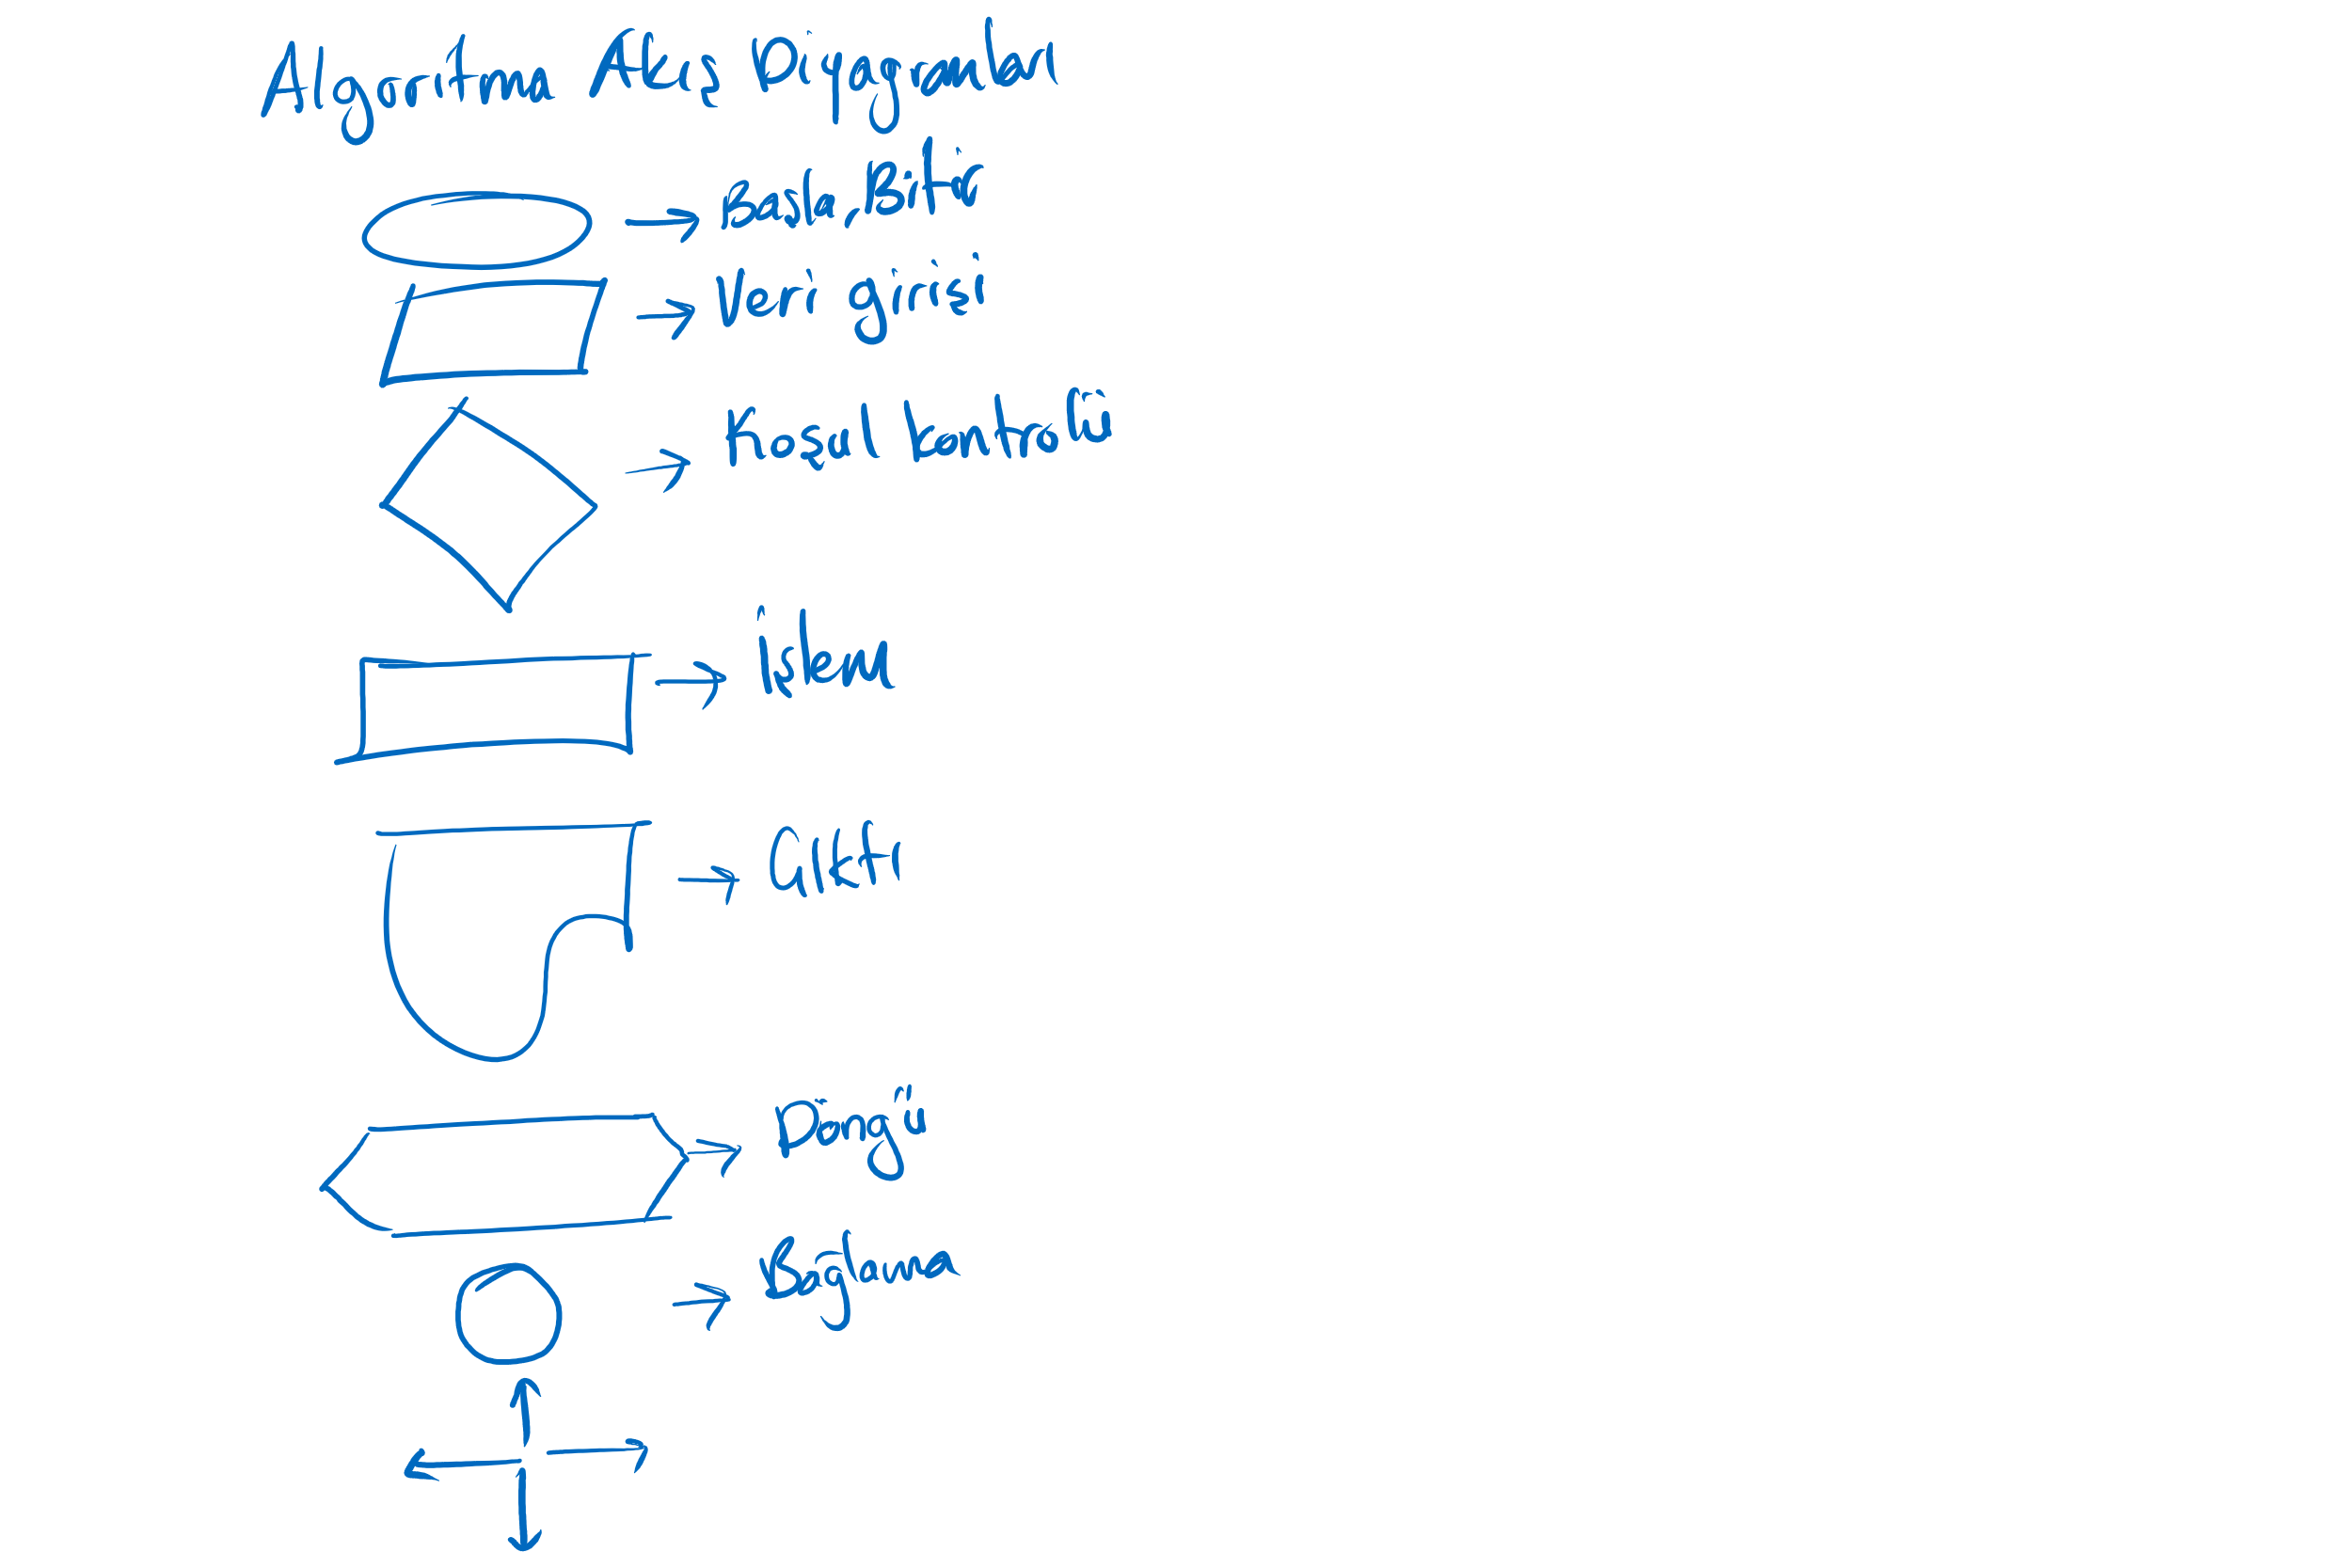 Algoritma Akış Diyagramları
Başla, Bitir
Veri girişi
Koşul kontrolü
İşlem
Çıktı
Döngü
Bağlama